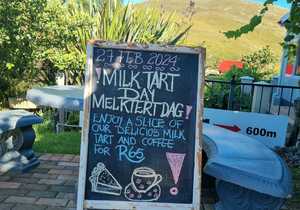 27 FEB 2024
! MILK TART
DAY
MELKTERTDAG!
ENJOY A SLICE OF
OUR DELICIOS MILK
TART AND COFFEE
FOR R65
600m